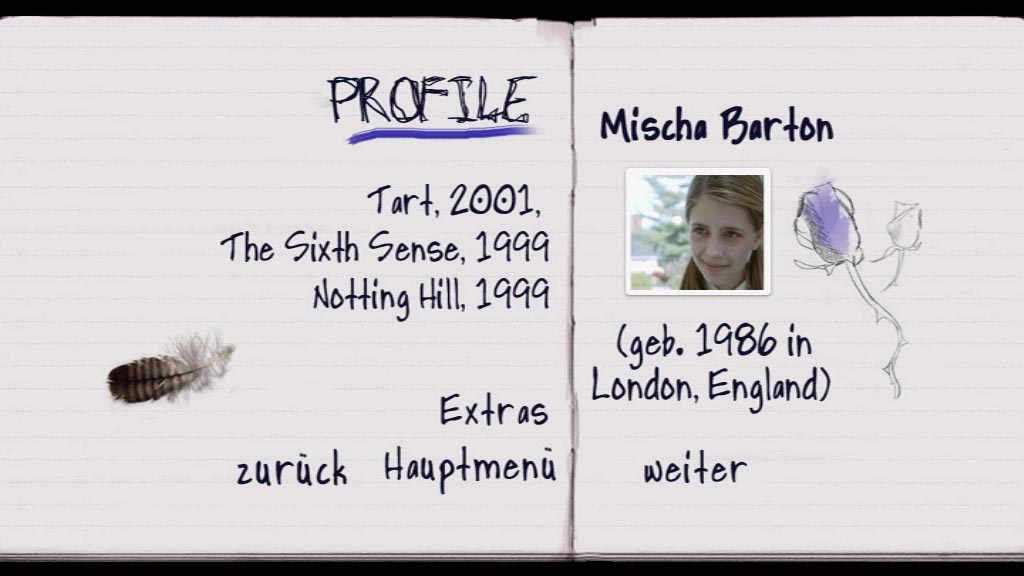 PROFILE
Tart, 2001,
The Sixth Sense, 1999
Notting Hill, 1999
Extras
zurück Hauptmenü
Mischa Barton
(geb. 1986 in
London, England)
weiter